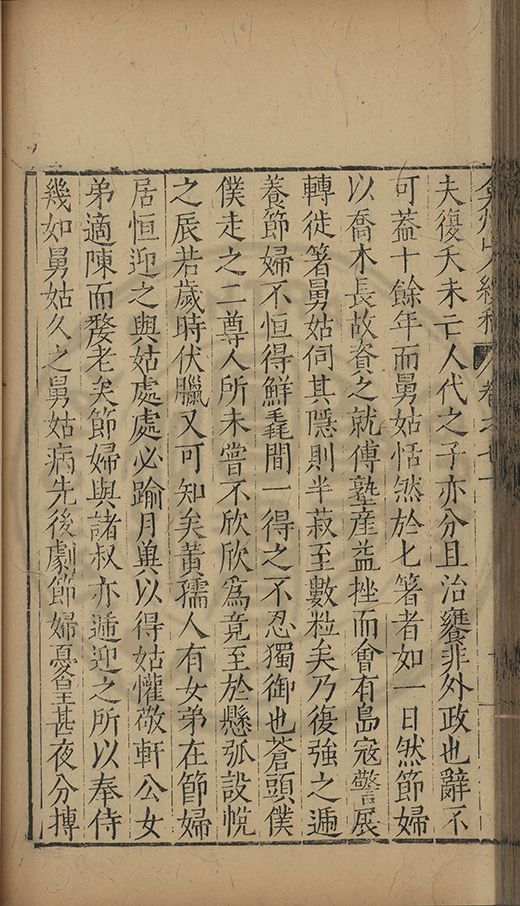 弇州山人續稿 卷之七十
夫復夭未亡人代之子亦分且治饔非外政也辭不
可葢十餘年而舅姑恬然於匕箸者如一日然節婦
以喬木長故資之就傅塾産益挫而會有島寇警展
轉徙箸舅姑伺其隱則半菽至數粒矣乃復強之逓
養節婦不恒得鮮毳間一得之不忍獨御也蒼頭僕
僕走之二尊人所未嘗不欣欣為竟至於懸弧設帨
之辰若歲時伏臘又可知矣黃孺人有女弟在節婦
居恒迎之與姑處處必踰月與以得姑懽敬軒公女
弟適陳而嫠老矣節婦與諸叔亦逓迎之所以奉侍
幾如舅姑久之舅姑病先後劇節婦憂皇甚夜分摶